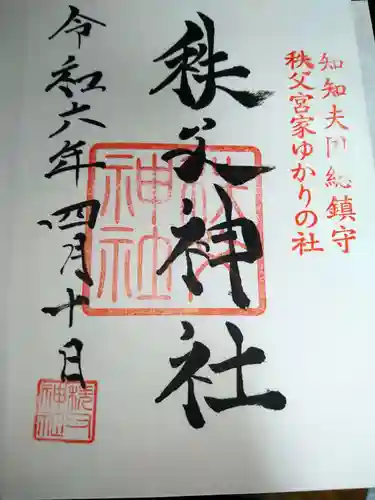 知知夫国総鎮守
秩父宮家ゆかりの社
秩父神社
令和六年四月十日
秩父
神社
秩父
神社